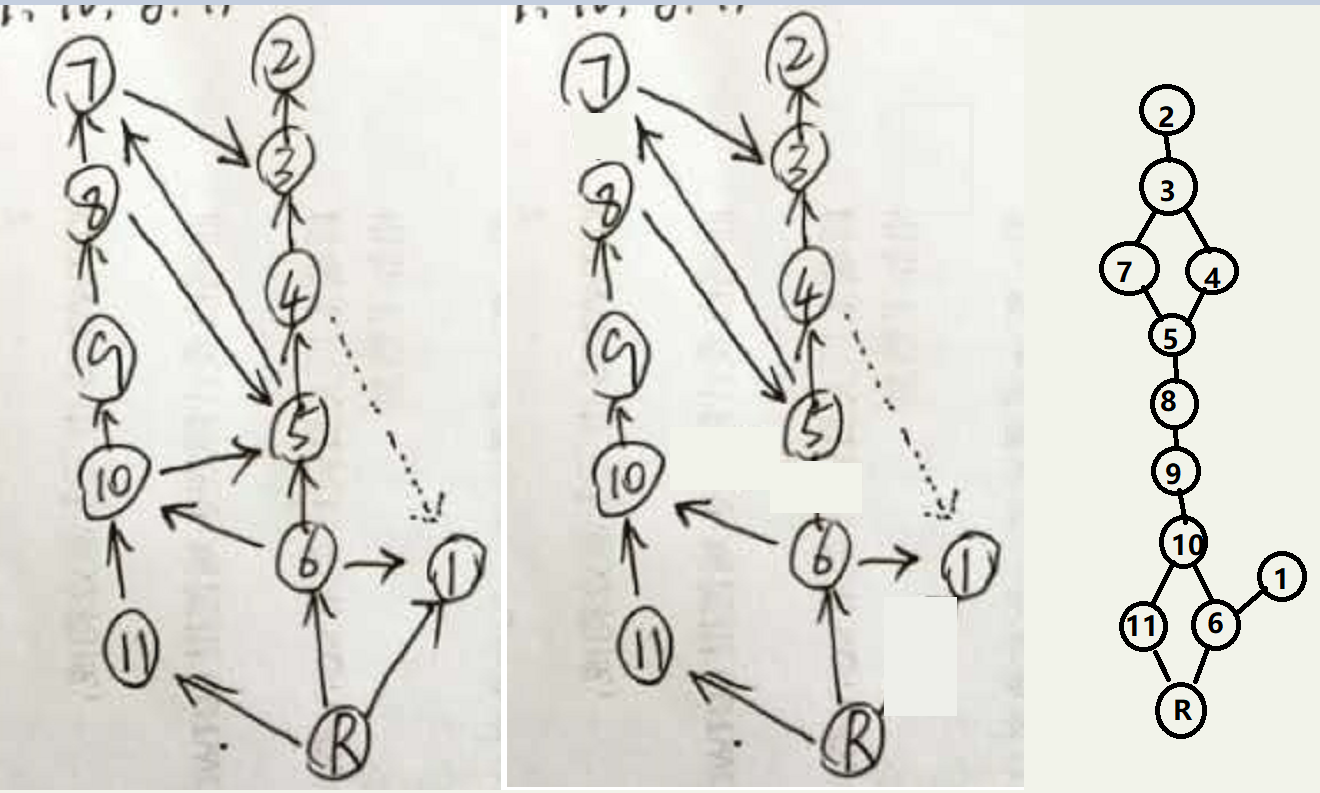 7 2
3
8
4
9
5
10
6 1
11
R
7 2
3
8
4
9
5
10
6 1
11
R
2
3
7 4
5
8
9
10
1
11 6
R